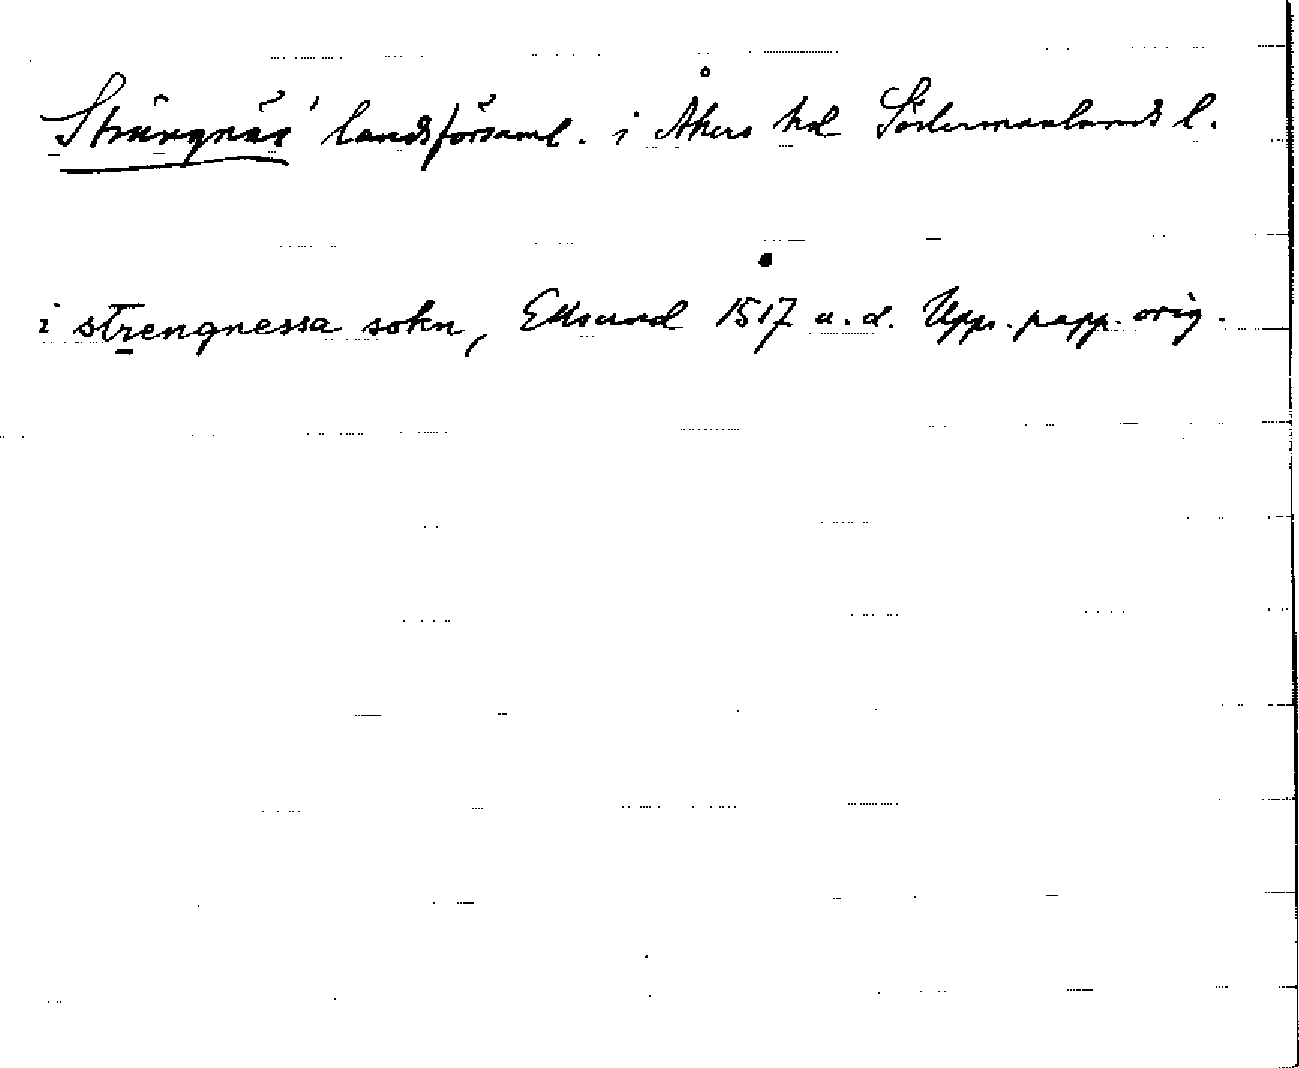 Strängnäs' landsförsaml. i Åkers hd Södermanlands l.
i strengnessa sokn, Eksund 1517 u.d. Upps. papp. orig.